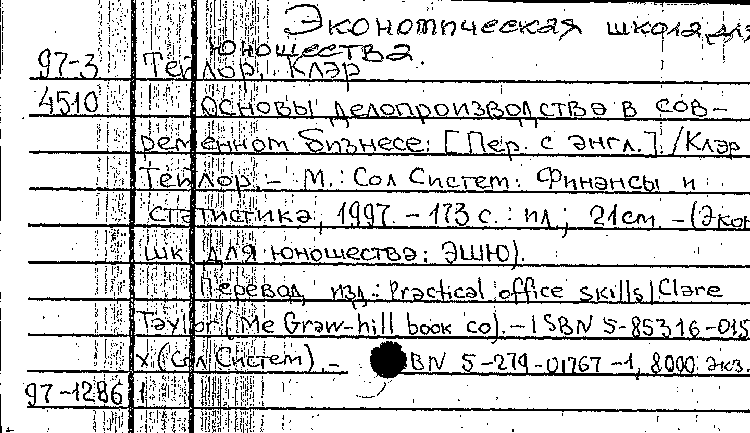 Экономическая школа для
юношества.
97-3 Тейлор, Клэр
4510 Основы делопроизводства в сов-
ременном бизнесе: [Пер. с англ.] / Клэр
Тейлор. - М.: Сол Систем: Финансы и
статистика, 1997. - 173 с.: ил.; 21 см. - (Экон.
шк. для юношества: ЭШЮ).
Перевод изд.: Practical office skills / Clare
Taylor (Me Graw-hill book co). - ISBN 5-85316-015
X (Сол Систем). - BN 5-279-01767-1, 8000 экз.
97-1286